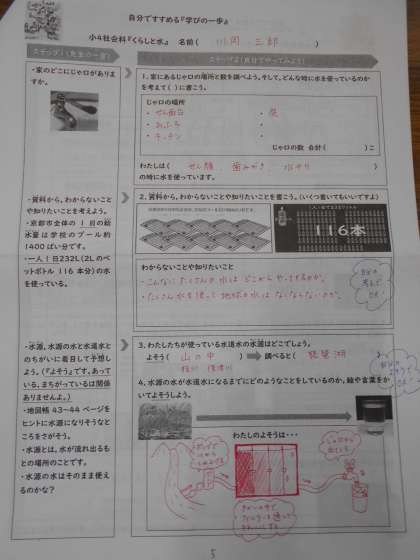 自分ですすめる『学びの一歩』
小4社会科『くらしと水』 名前( 川岡 三郎 )
ステップ1(先生の一言)
ステップ2(自分でやってみよう)
・家のどこにじゃ口がありますか。
1. 家にあるじゃ口の場所と数を調べよう。そして、どんな時に水を使っているのかを考えて( )に書こう。
じゃ口の場所
・せん面台
・おふろ
・キッチン
じゃ口の数 合計( )こ
わたしは( せん顔、歯みがき、水やり )の時に水を使っています。
・資料から、わからないことや知りたいことを考えよう。
・京都市全体の1日の給水量は学校のプール約1400ぱい分です。
・一人1日232L(2Lのペットボトル 116本分)の水を使っている。
2. 資料から、わからないことや知りたいことを書こう。(いくつ書いてもいいですよ)
116本
わからないことや知りたいこと
・こんなにたくさんの水はどこからやってきるのか。
・たくさん水を使って地球の水はなくならないのか。
・水源、水源の水と水道水とのちがいに着目して予想しよう。(『よそう』です。あっている、まちがっているは関係ありませんよ。)
・地図帳43~44ページをヒントに水源になりそうなところをさがそう。
・水源とは、水が流れ出るもとの場所のことです。
・水源の水はそのまま使えるのかな?
3. わたしたちが使っている水道水の水源はどこでしょう。
よそう( 山の中 ) 調べると( 琵琶湖 )
桂川
4. 水源の水が水道水になるまでにどのようなことをしているのか、絵や言葉をかいてよそうしよう。
わたしのよそうは・・・
5